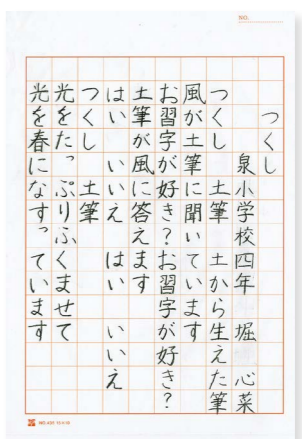 NO.
つくし
泉小学校四年　堀　心菜
つくし　土筆　土から生えた筆
風が土筆に聞いています
お習字が好き？お習字が好き？
土筆が風に答えます
はい　いいえ　はい　いいえ
つくし　土筆
光をたっぷりふくませて
光を春になすっています